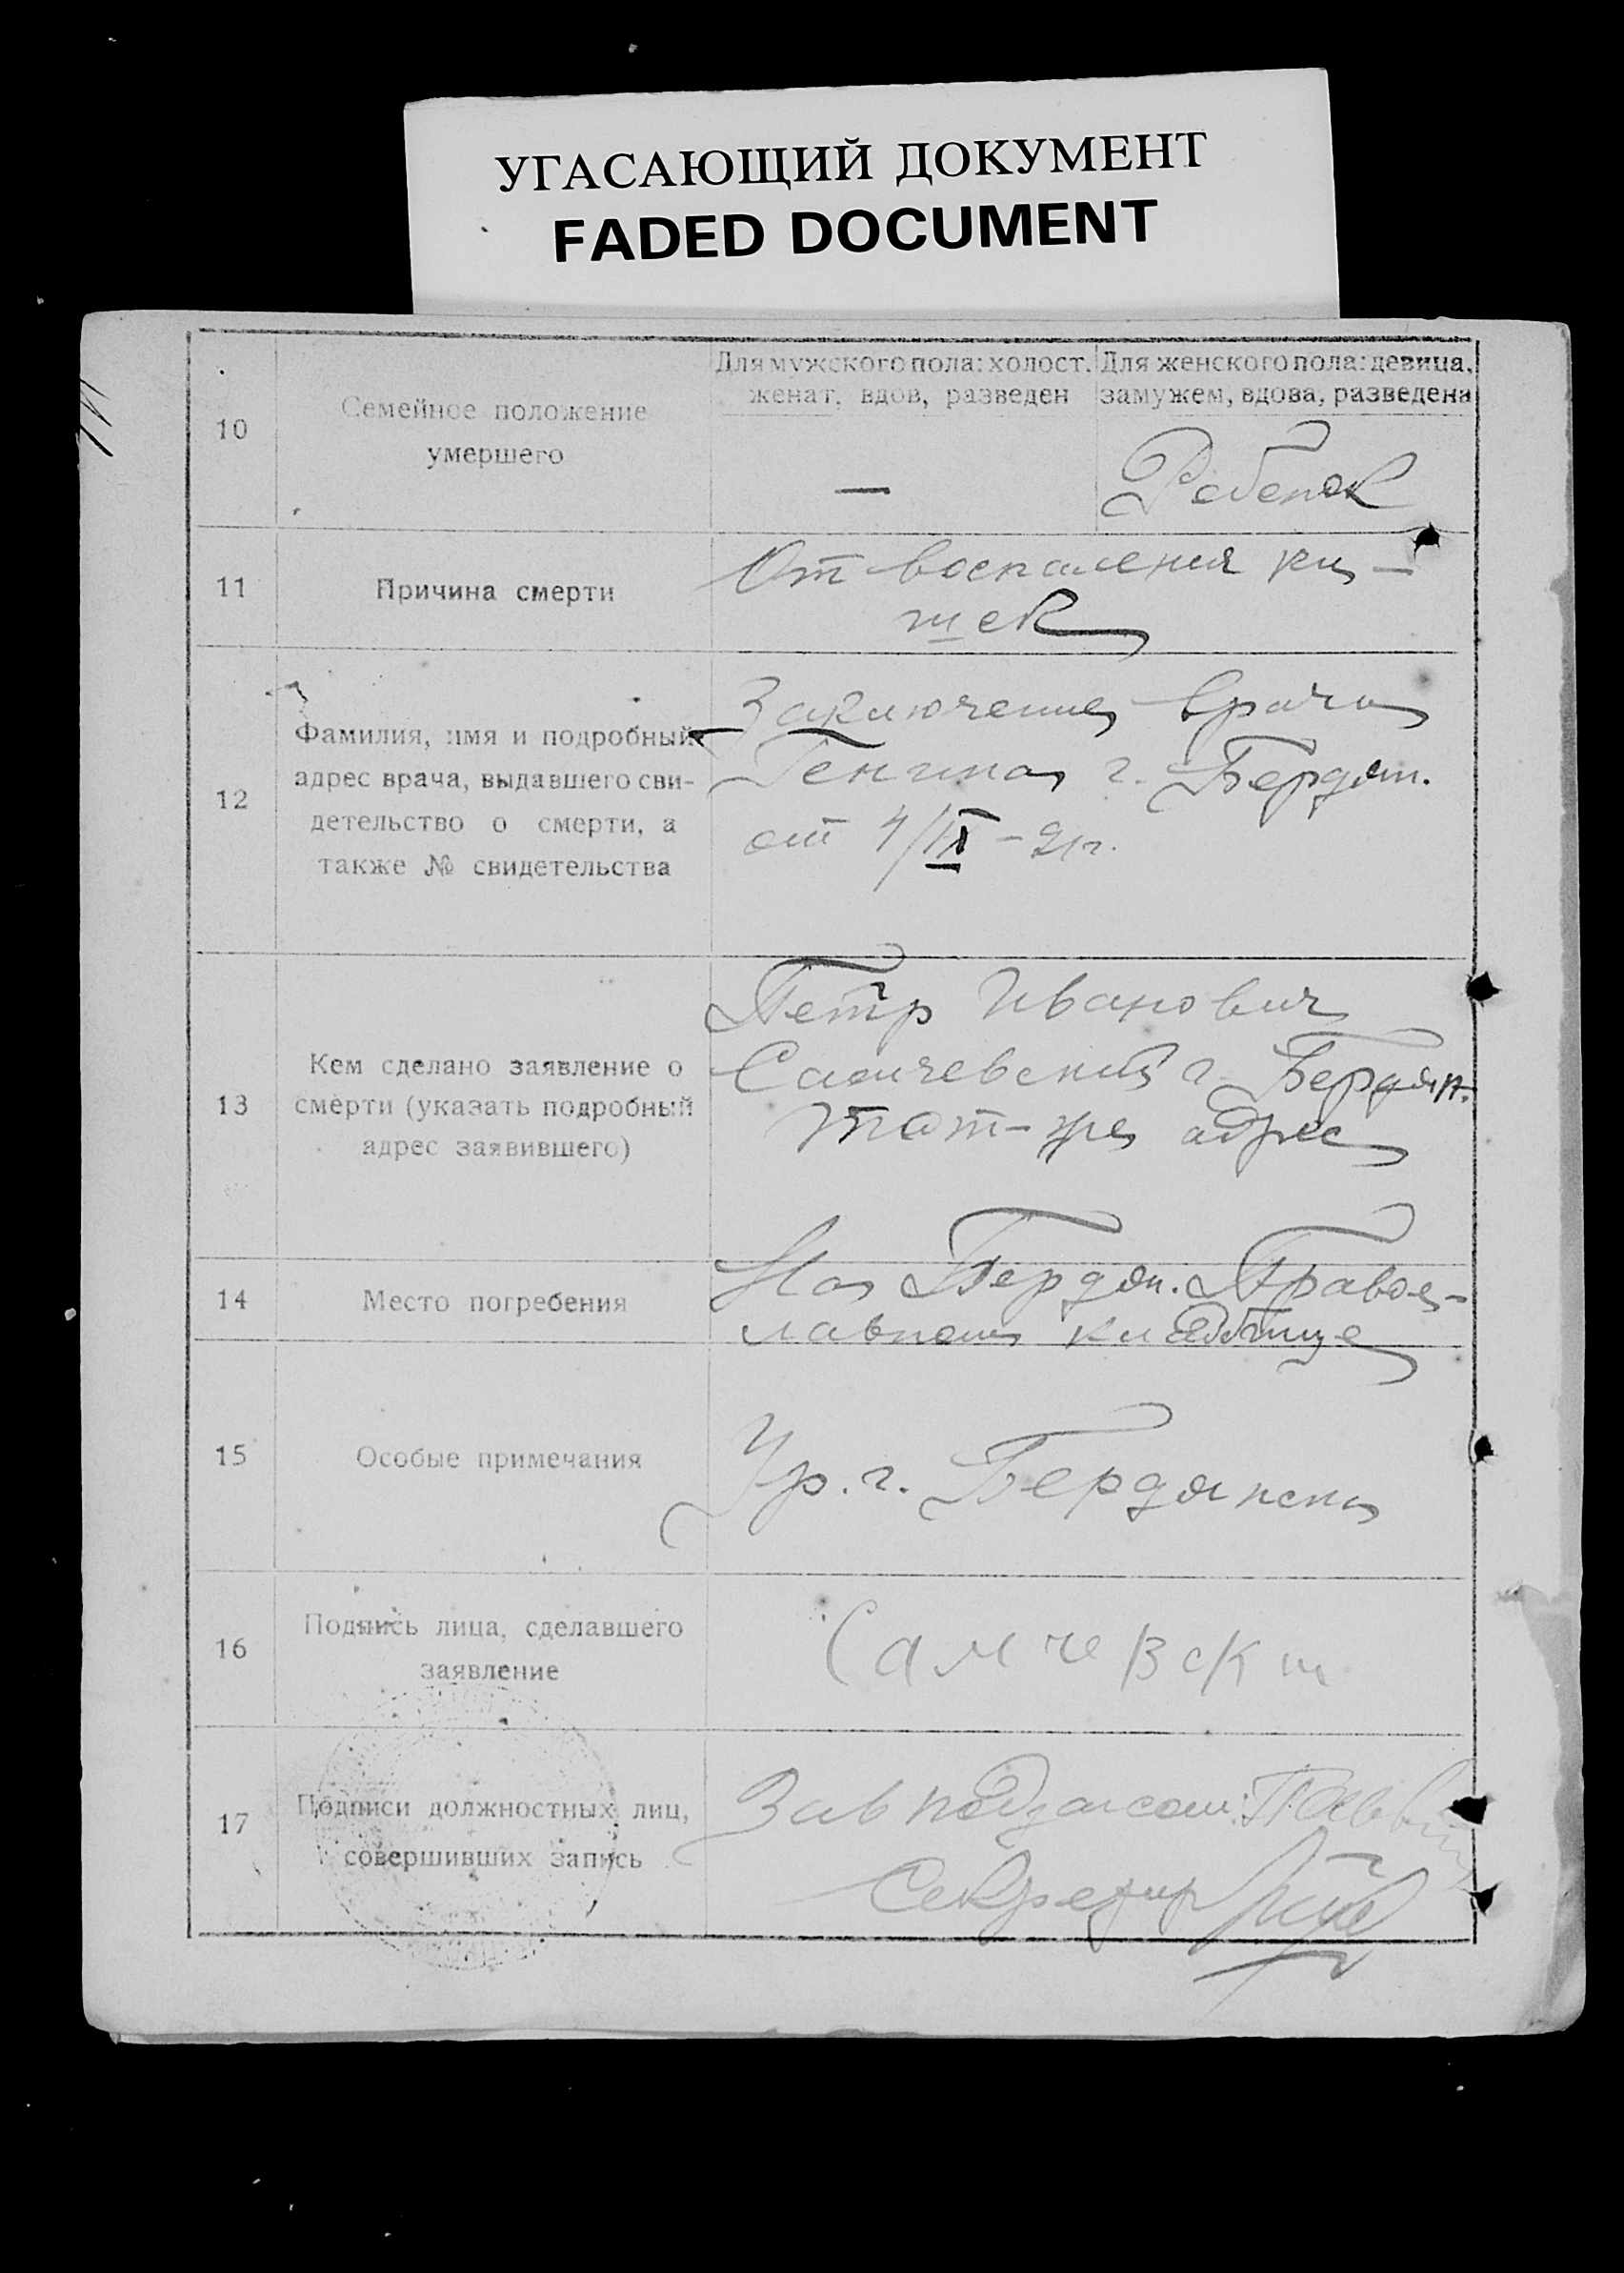 УГАСАЮЩИЙ ДОКУМЕНТ
FADED DOCUMENT
10
Семейное положение
умершего
Для мужского пола: холост.
женат, вдов, разведен
—
Для женского пола: девица,
замужем, вдова, разведена
Ребенок
11
Причина смерти
От воспаления ки-
шек
12
Фамилия, имя и подробный
адрес врача, выдавшего сви-
детельство о смерти, а
также № свидетельства
Заключение врача
г. Бердян.
от 4/IX - 21 г.
13
Кем сделано заявление о
смерти (указать подробный
адрес заявившего)
Петр Иванович
Самчевский г. Бердян.
тот-же адрес
14
Место погребения
На Бердян. Правос-
лавном кладбище
15
Особые примечания
Ур. г. Бердянска
16
Подпись лица, сделавшего
заявление
Самчевски
17
Подписи должностных лиц,
совершивших запись
Зав подзагсом:
Секретарь